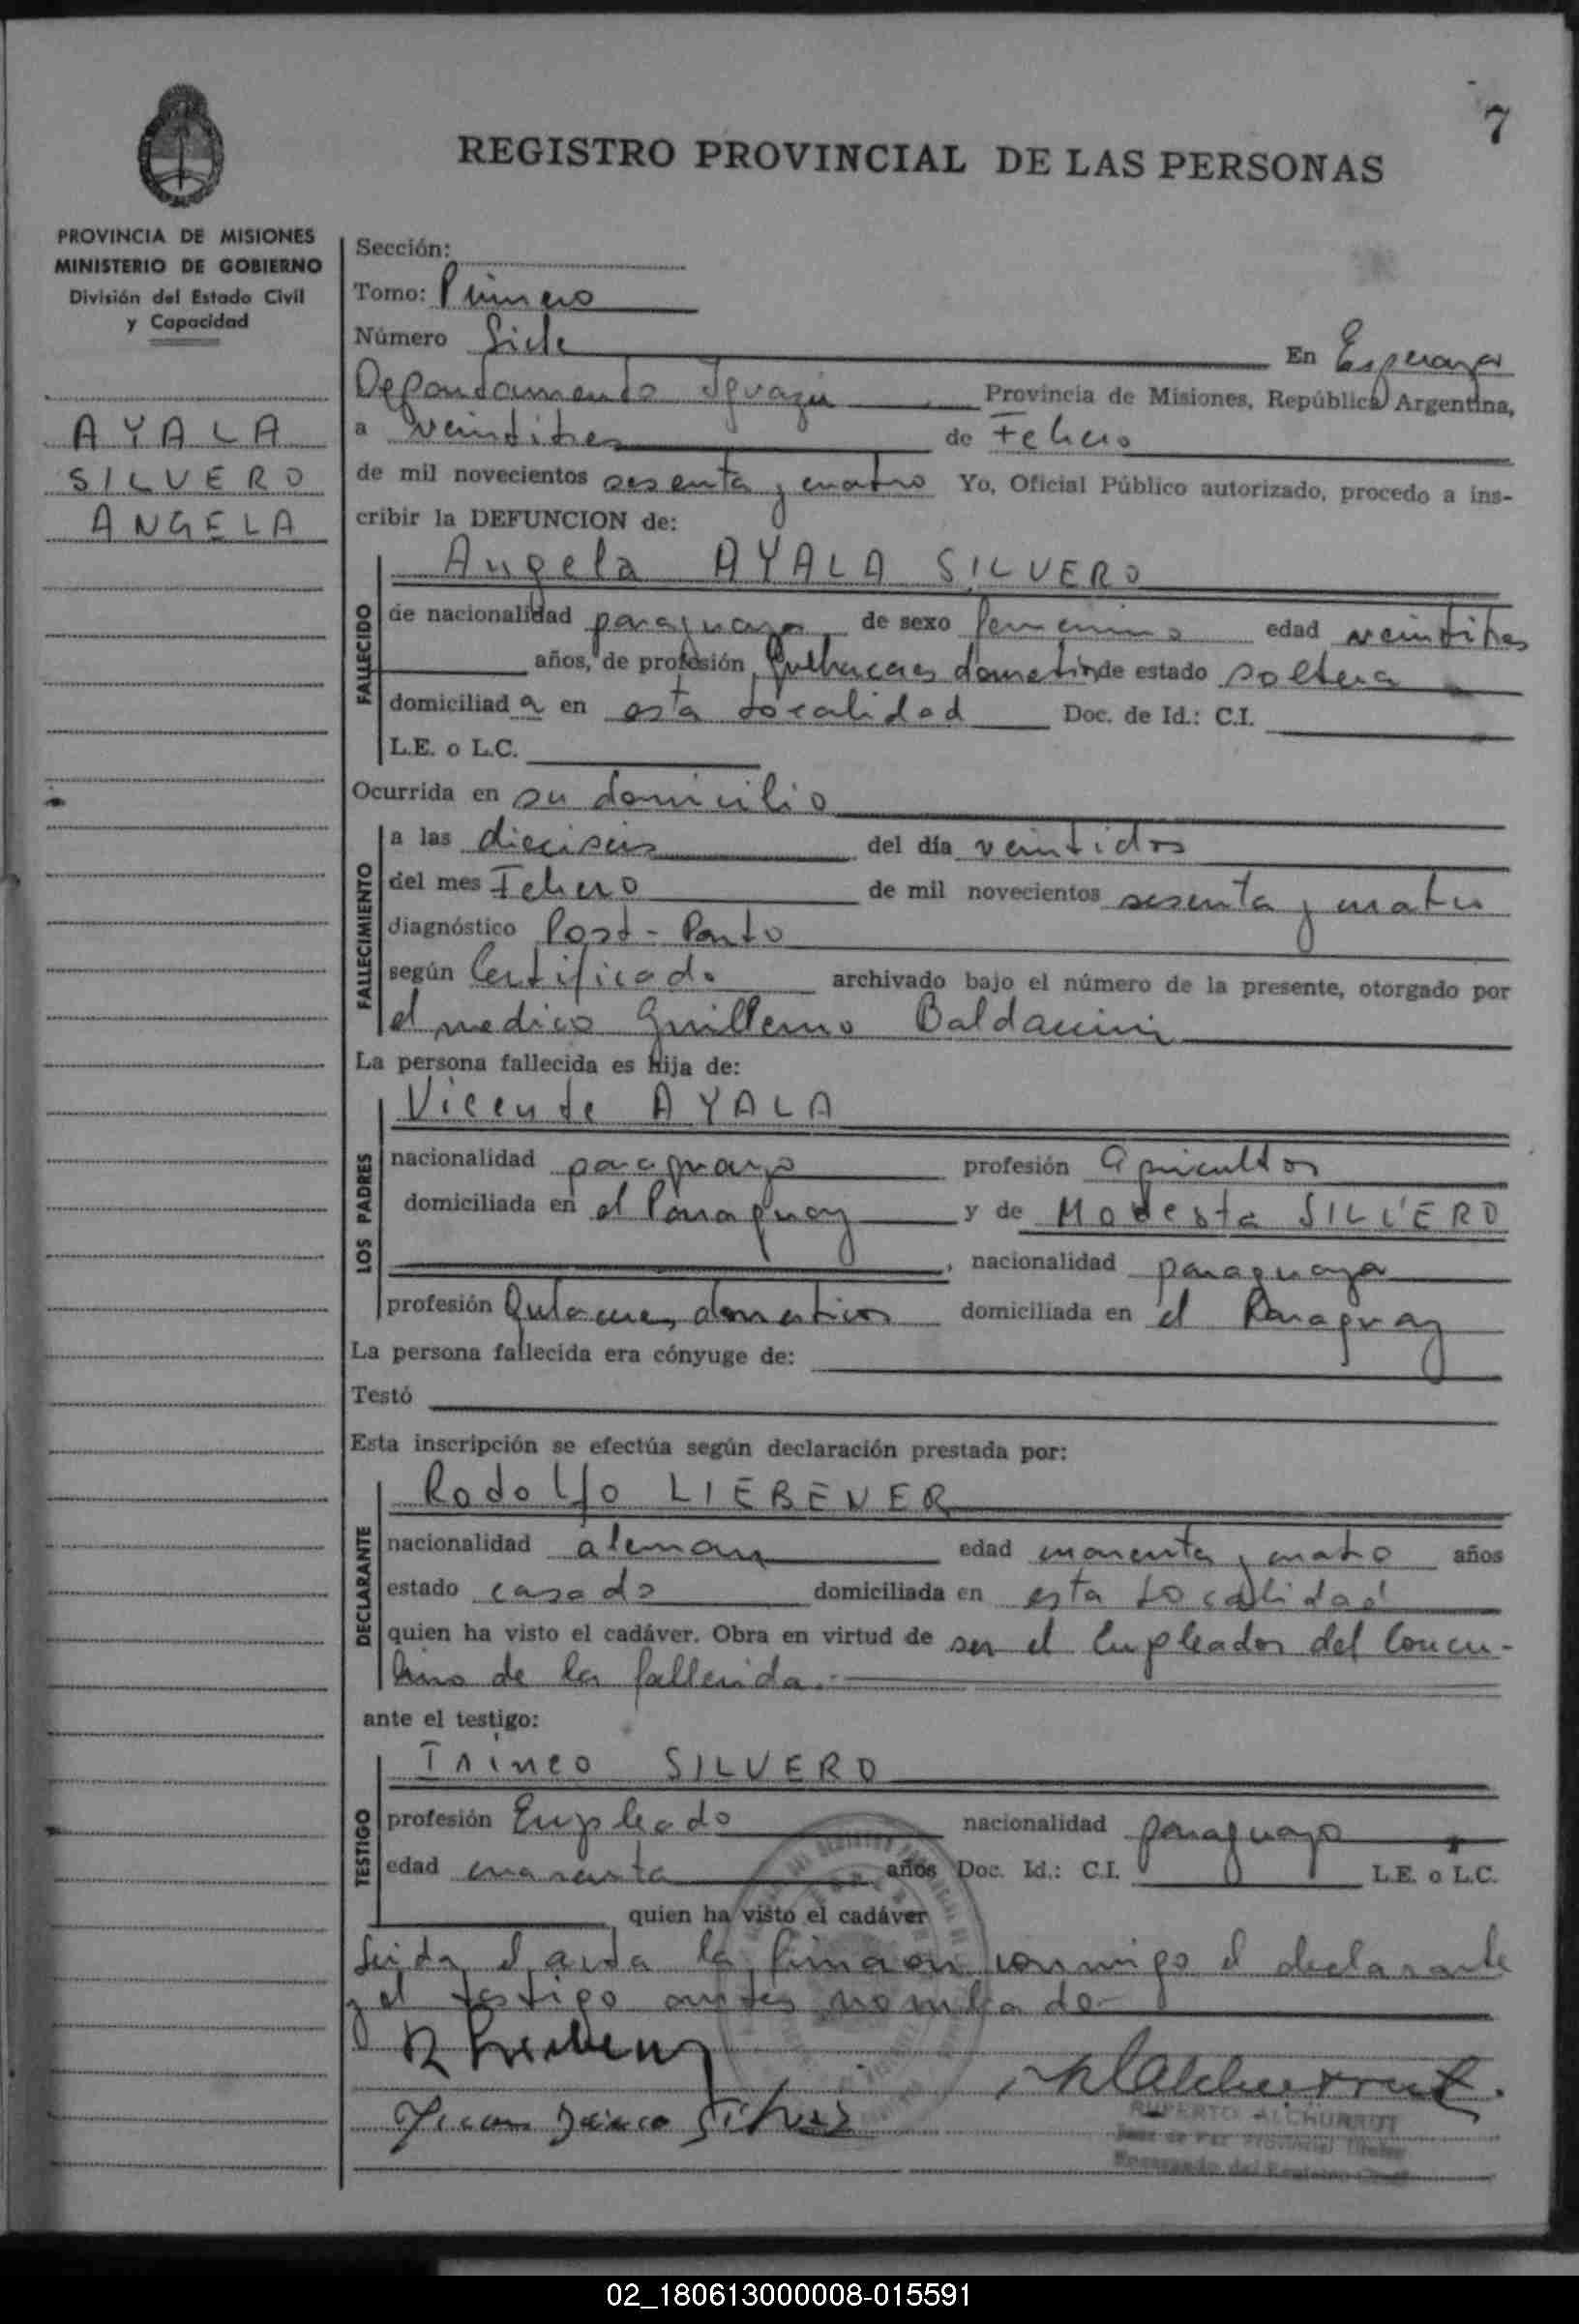 7
REGISTRO PROVINCIAL DE LAS PERSONAS
PROVINCIA DE MISIONES
MINISTERIO DE GOBIERNO
División del Estado Civil
y Capacidad
AYALA
SILVERO
ANGELA
Sección:
Tomo: Primero
Número Siete En Esperanza
Departamento Iguazú Provincia de Misiones, República Argentina,
a veintitres de Febrero
de mil novecientos sesenta y cuatro Yo, Oficial Público autorizado, procedo a ins-
cribir la DEFUNCION de:
Angela AYALA SILVERO
FALLECIDO
de nacionalidad paraguaya de sexo femenino edad veintitres
años, de profesión Quehaceres domestico de estado soltera
domiciliad a en esta localidad Doc. de Id.: C.I.
L.E. o L.C.
Ocurrida en su domicilio
FALLECIMIENTO
a las dieciseis del día veintidos
del mes Febrero de mil novecientos sesenta y cuatro
diagnóstico Post-Parto
según Certificado archivado bajo el número de la presente, otorgado por
el medico Guillermo Baldaccini
La persona fallecida es hija de:
Vicente AYALA
LOS PADRES
nacionalidad paraguayo profesión agricultor
domiciliada en el Paraguay y de Modesta SILVERO
, nacionalidad paraguaya
profesión Quehaceres domesticos domiciliada en el Paraguay
La persona fallecida era cónyuge de:
Testó
Esta inscripción se efectúa según declaración prestada por:
Rodolfo LIEBENER
DECLARANTE
nacionalidad aleman edad cuarenta y cuatro años
estado casado domiciliada en esta localidad
quien ha visto el cadáver. Obra en virtud de ser el Empleador del Concu-
bino de la fallecida.-
ante el testigo:
Irineo SILVERO
TESTIGO
profesión Empleado nacionalidad paraguayo
edad cuarenta años Doc. Id.: C.I. L.E. o L.C.
quien ha visto el cadáver
Leida el acta la firman conmigo el declarante
y el testigo antes nombrado-
RUPERTO ALCHURRUT
Juez de Paz Provincial Titular
Encargado del Registro Civil
02_180613000008-015591